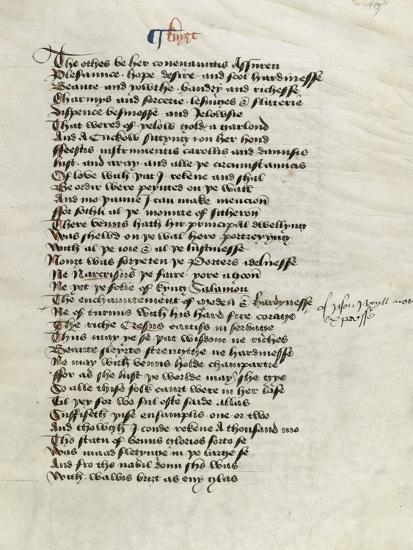 ¶ knyȝt
The othes þe her conenauntis Assuren
Plesaunce hope desire and fool hardinesse
Beaute and yowthe baudry and richesse
Charmys and sorcerie lesinges & flaterie
Dispence besinesse and Jelowsie
That wered of yelow gold a garlond
And A Cuckow sittyng on her hond
ffeestis instrumentis carollis and daunsis
lust and array and alle þe circumstancis
Of love wich þat J rekene and shal
Be order were peynted on þe wall
And mo þanne J can make mencion
ffor sothli al þe mounte of sitheron
There venus hath hir principal dwellyng
Was shewd on þe wal here portreyyng
With al þe ioie & al þe lustinesse
Nouȝt was foryeten þe Porteer idelnesse
Ne Narcissus þe faire yore agoon
Ne yet þe folie of kyng Salamon
The enchauntement of medea & hardynesse
Ne of turnus with his hard fire corage
The riche Cresus caitiff in servage
Thus may ye se þat wisdom ne riches
Beaute sleyȝte strengthe ne hardinesse
Ne may with venus holde champartie
ffor as she lust þe worlde may she gye
So alle thise folk cauȝt were in her lase
Til þey for wo ful ofte saide allas
Suffiseth þise ensamplis one or two
And thowȝh J conde rekene A thousand mo
The statu of venus glorios forto se
Was maad fletynge in þe large se
And fro the nabil doun she was
With wawis briȝt as eny glas